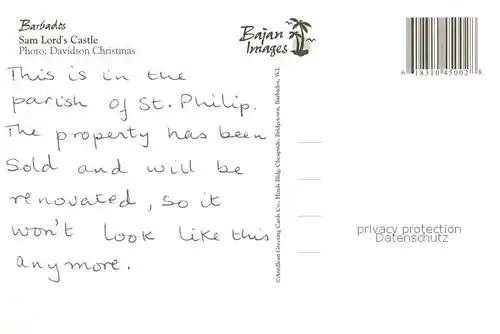 Barbados
Sam Lord's Castle
Photo: Davidson Christmas
Bajan
Images
6 18310 45002 8
This is in the
parish of St. Philip.
The property has been
Sold and will be
renovated, so it
won't look like this
anymore.
©Antillean Greeting Cards Co., Hinds Bldg. Cheapside, Bridgetown, Barbados, W.I.
privacy protection
Datenschutz